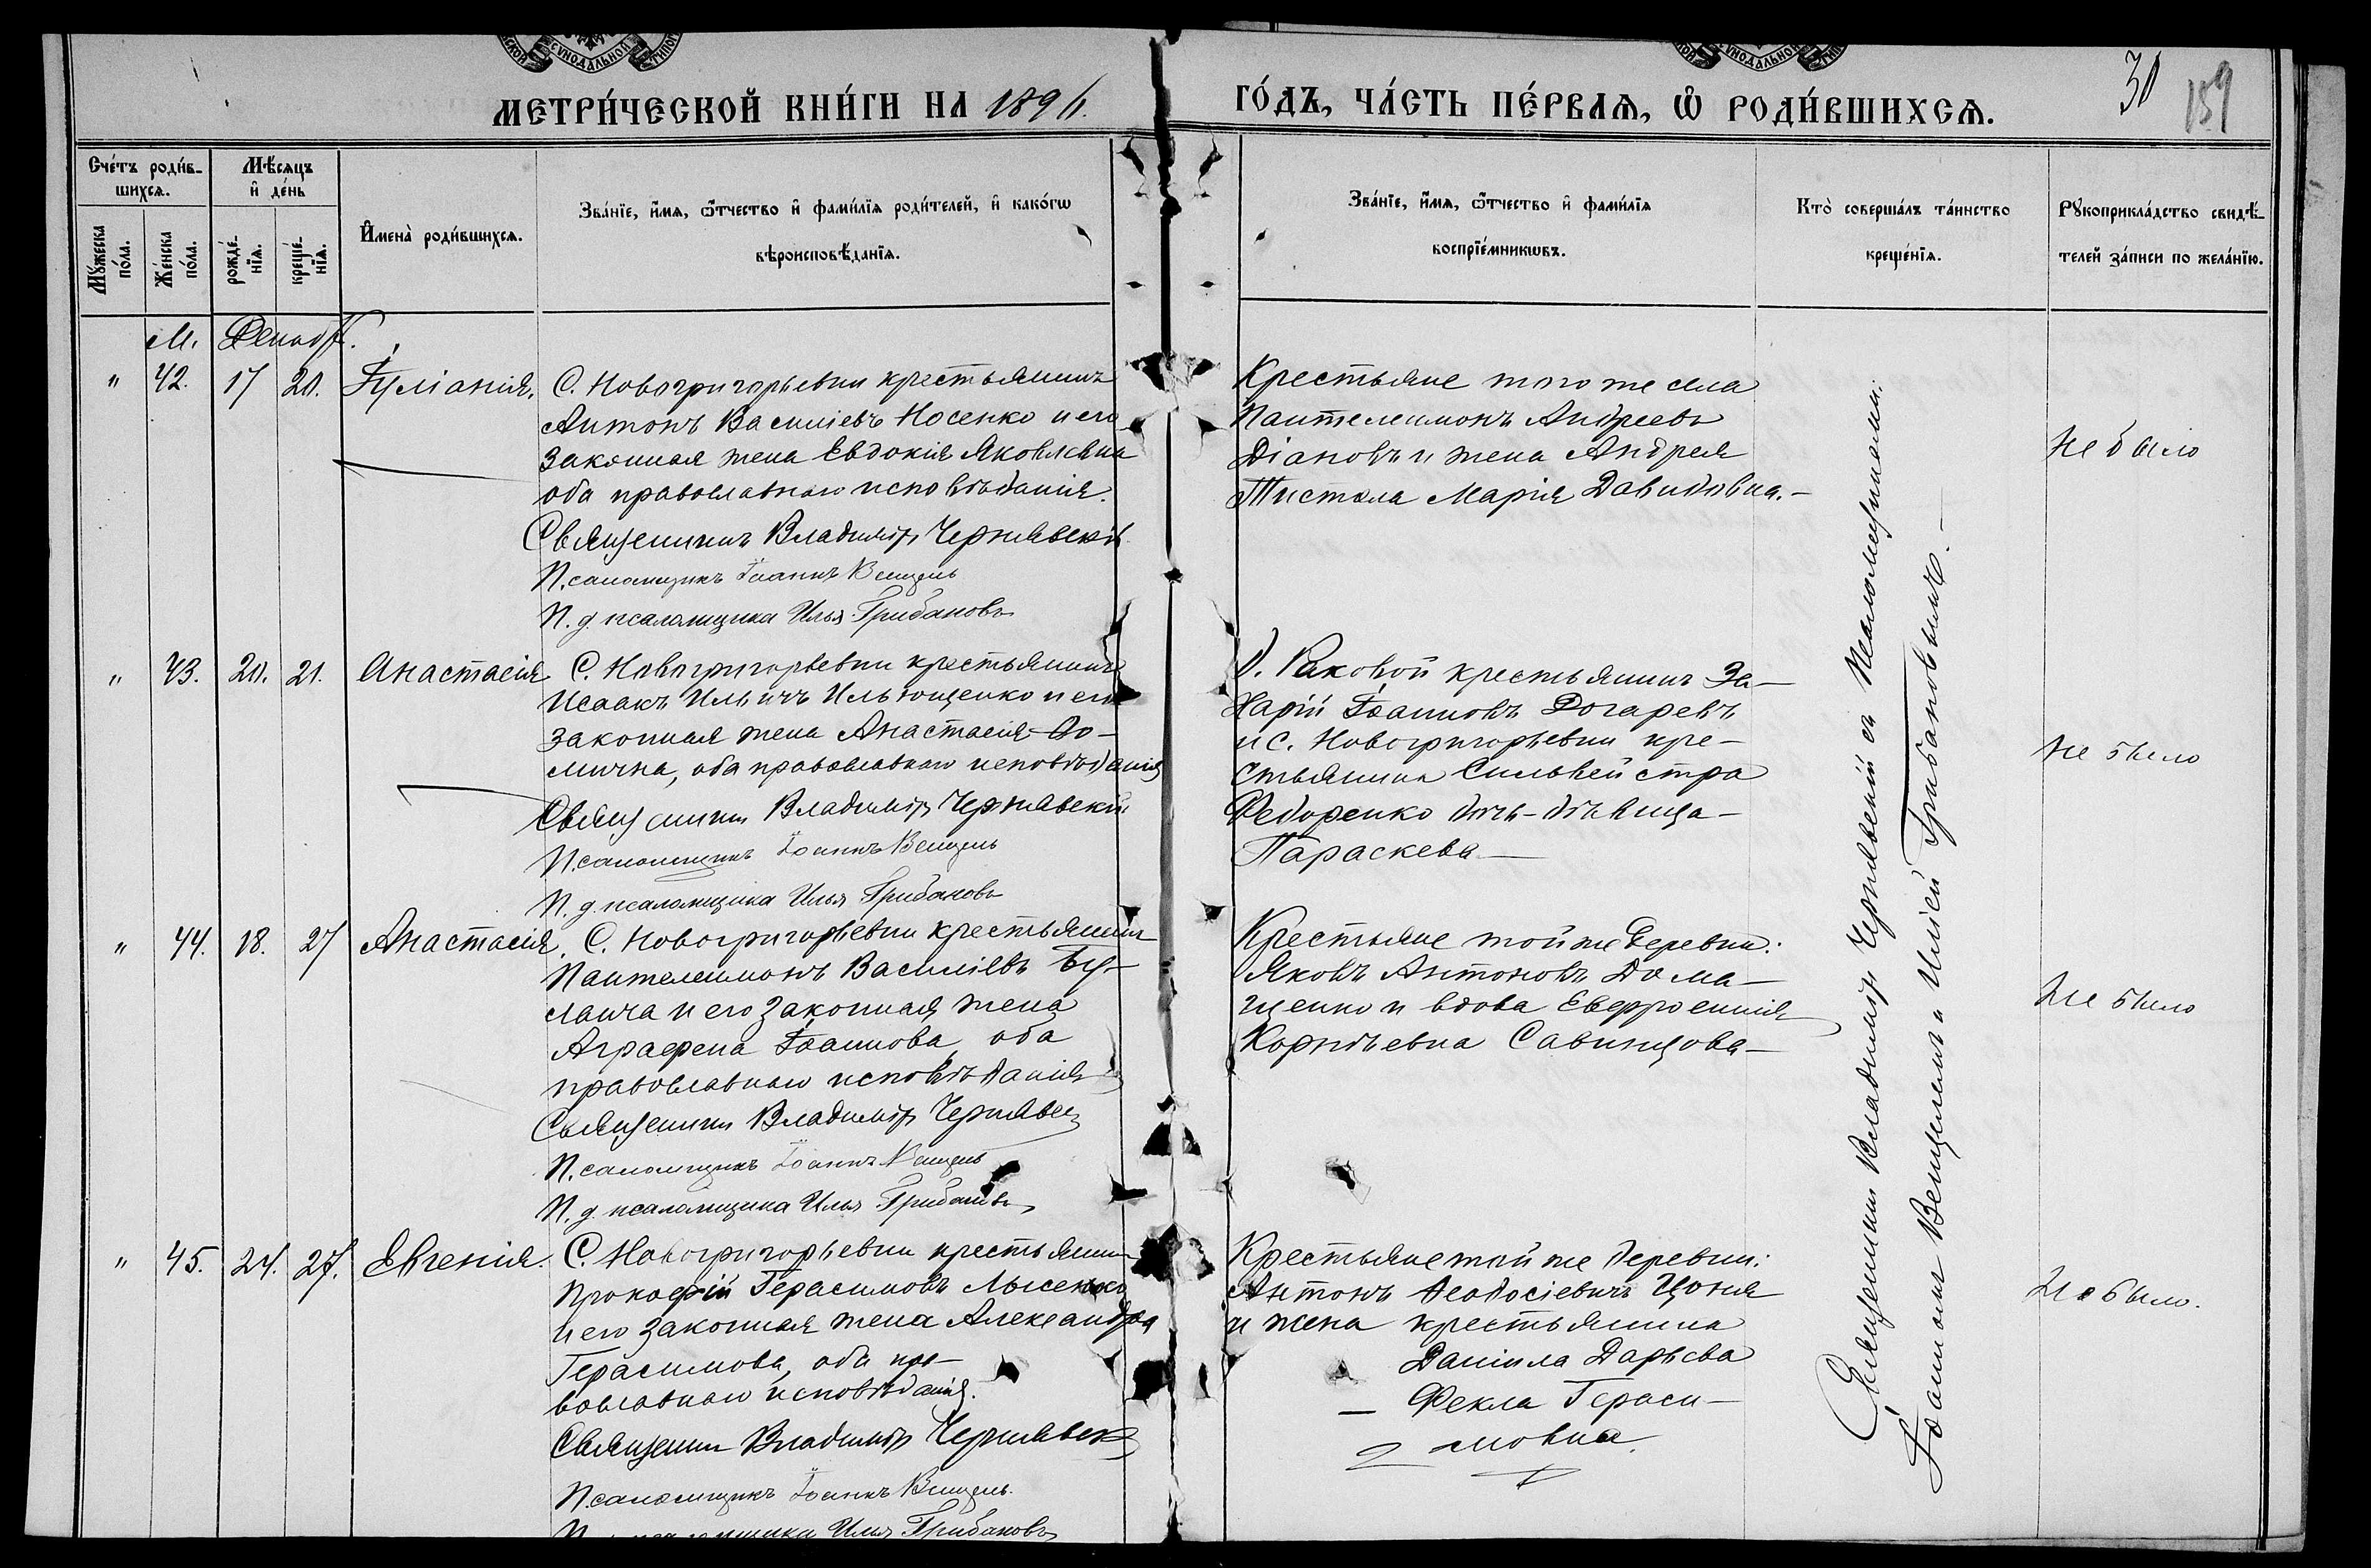 МЕТРИ́ЧЕСКОЙ КНИ́ГИ НА 1896.
ГО́ДЪ, ЧА́СТЬ ПЕ́РВАЯ, Ѡ҆ РОДИ́ВШИХСЯ.
30
159
Сче́тъ роди́в-
шихся.
Мѣ́сяцъ
и҆ де́нь
Му́жеска
по́ла.
Же́нска
по́ла.
рожде́-
нїя.
креще́-
нїя.
И҆мена̀ роди́вшихся.
Зва́нїе, и҆́мя, ѻ҆́тчество и҆ фами́лїя роди́телей, и҆ како́гѡ
вѣроисповѣ́данїя.
Зва́нїе, и҆́мя, ѻ҆́тчество и҆ фами́лїя
воспрїе́мникѡвъ.
Кто̀ соверша́лъ та́инство
креще́нїя.
Рꙋкоприкла́дство свидѣ́-
телей за́писи по жела́нїю.
М.
" 42. 17 20. Іуліанія. С. Новогригорьевки крестьянинъ
Антонъ Василіевъ Носенко и его
законная жена Евдокія Яковлевна
оба православнаго исповѣданія.
Священникъ Владиміръ Чернявскій
Псаломщикъ Іоаннъ Венцель
И. д. псаломщика Илья Грибановъ
Крестьяне того же села
Пантелеимонъ Андреевъ
Діановъ и жена Андрея
Тистола Марія Давидовна.-
Не было
" 43. 20. 21. Анастасія С. Новогригорьевки крестьянинъ
Исаакъ Ильичъ Ильющенко и его
законная жена Анастасія Ѳо-
мична, оба православнаго исповѣданія
Священникъ Владиміръ Чернявскій
Псаломщикъ Іоаннъ Венцель
И. д. псаломщика Илья Грибановъ
Д. Раковой крестьянинъ За-
харій Іоанновъ Догаревъ
и с. Новогригорьевки кре-
стьянина Сильвейстра
Федоренко дочь-дѣвица-
Параскева-
Не было
" 44. 18. 27 Анастасія. С. Новогригорьевки крестьянинъ
Пантелеимонъ Василіевъ
и его законная жена
Аграфена Іоаннова оба
православнаго исповѣданія
Священникъ Владиміръ Чернявск
Псаломщикъ Іоаннъ Венцель
И. д. псаломщика Илья Грибановъ
Крестьяне той же деревни:
Яковъ Антоновъ Дома-
щенко и вдова Евфросинія
Корнѣевна Савинцова-
Не было
" 45. 24. 27. Евгенія. С. Новогригорьевки крестьянинъ
Прокофій Герасимовъ Лысенко
и его законная жена Александра
Герасимова, оба пра-
вославнаго исповѣданія.
Священникъ Владиміръ Чернявск
Псаломщикъ Іоаннъ Венцель
псаломщика Илья Грибановъ
Крестьяне той же деревни:
Антонъ Ѳеодосіевичъ Цоня
и жена крестьянина
Даніила Дарьева
- Фекла Гераси-
мовна.
Не было.
Священникъ Владиміръ Чернявскій съ Псаломщиками:
Іоанномъ Венцелемъ и Иліей Грибановымъ.-